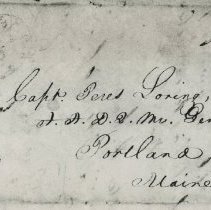 Capt. Peres Loring,
A. A. D. Q. Mr. Gen
Portland
Maine